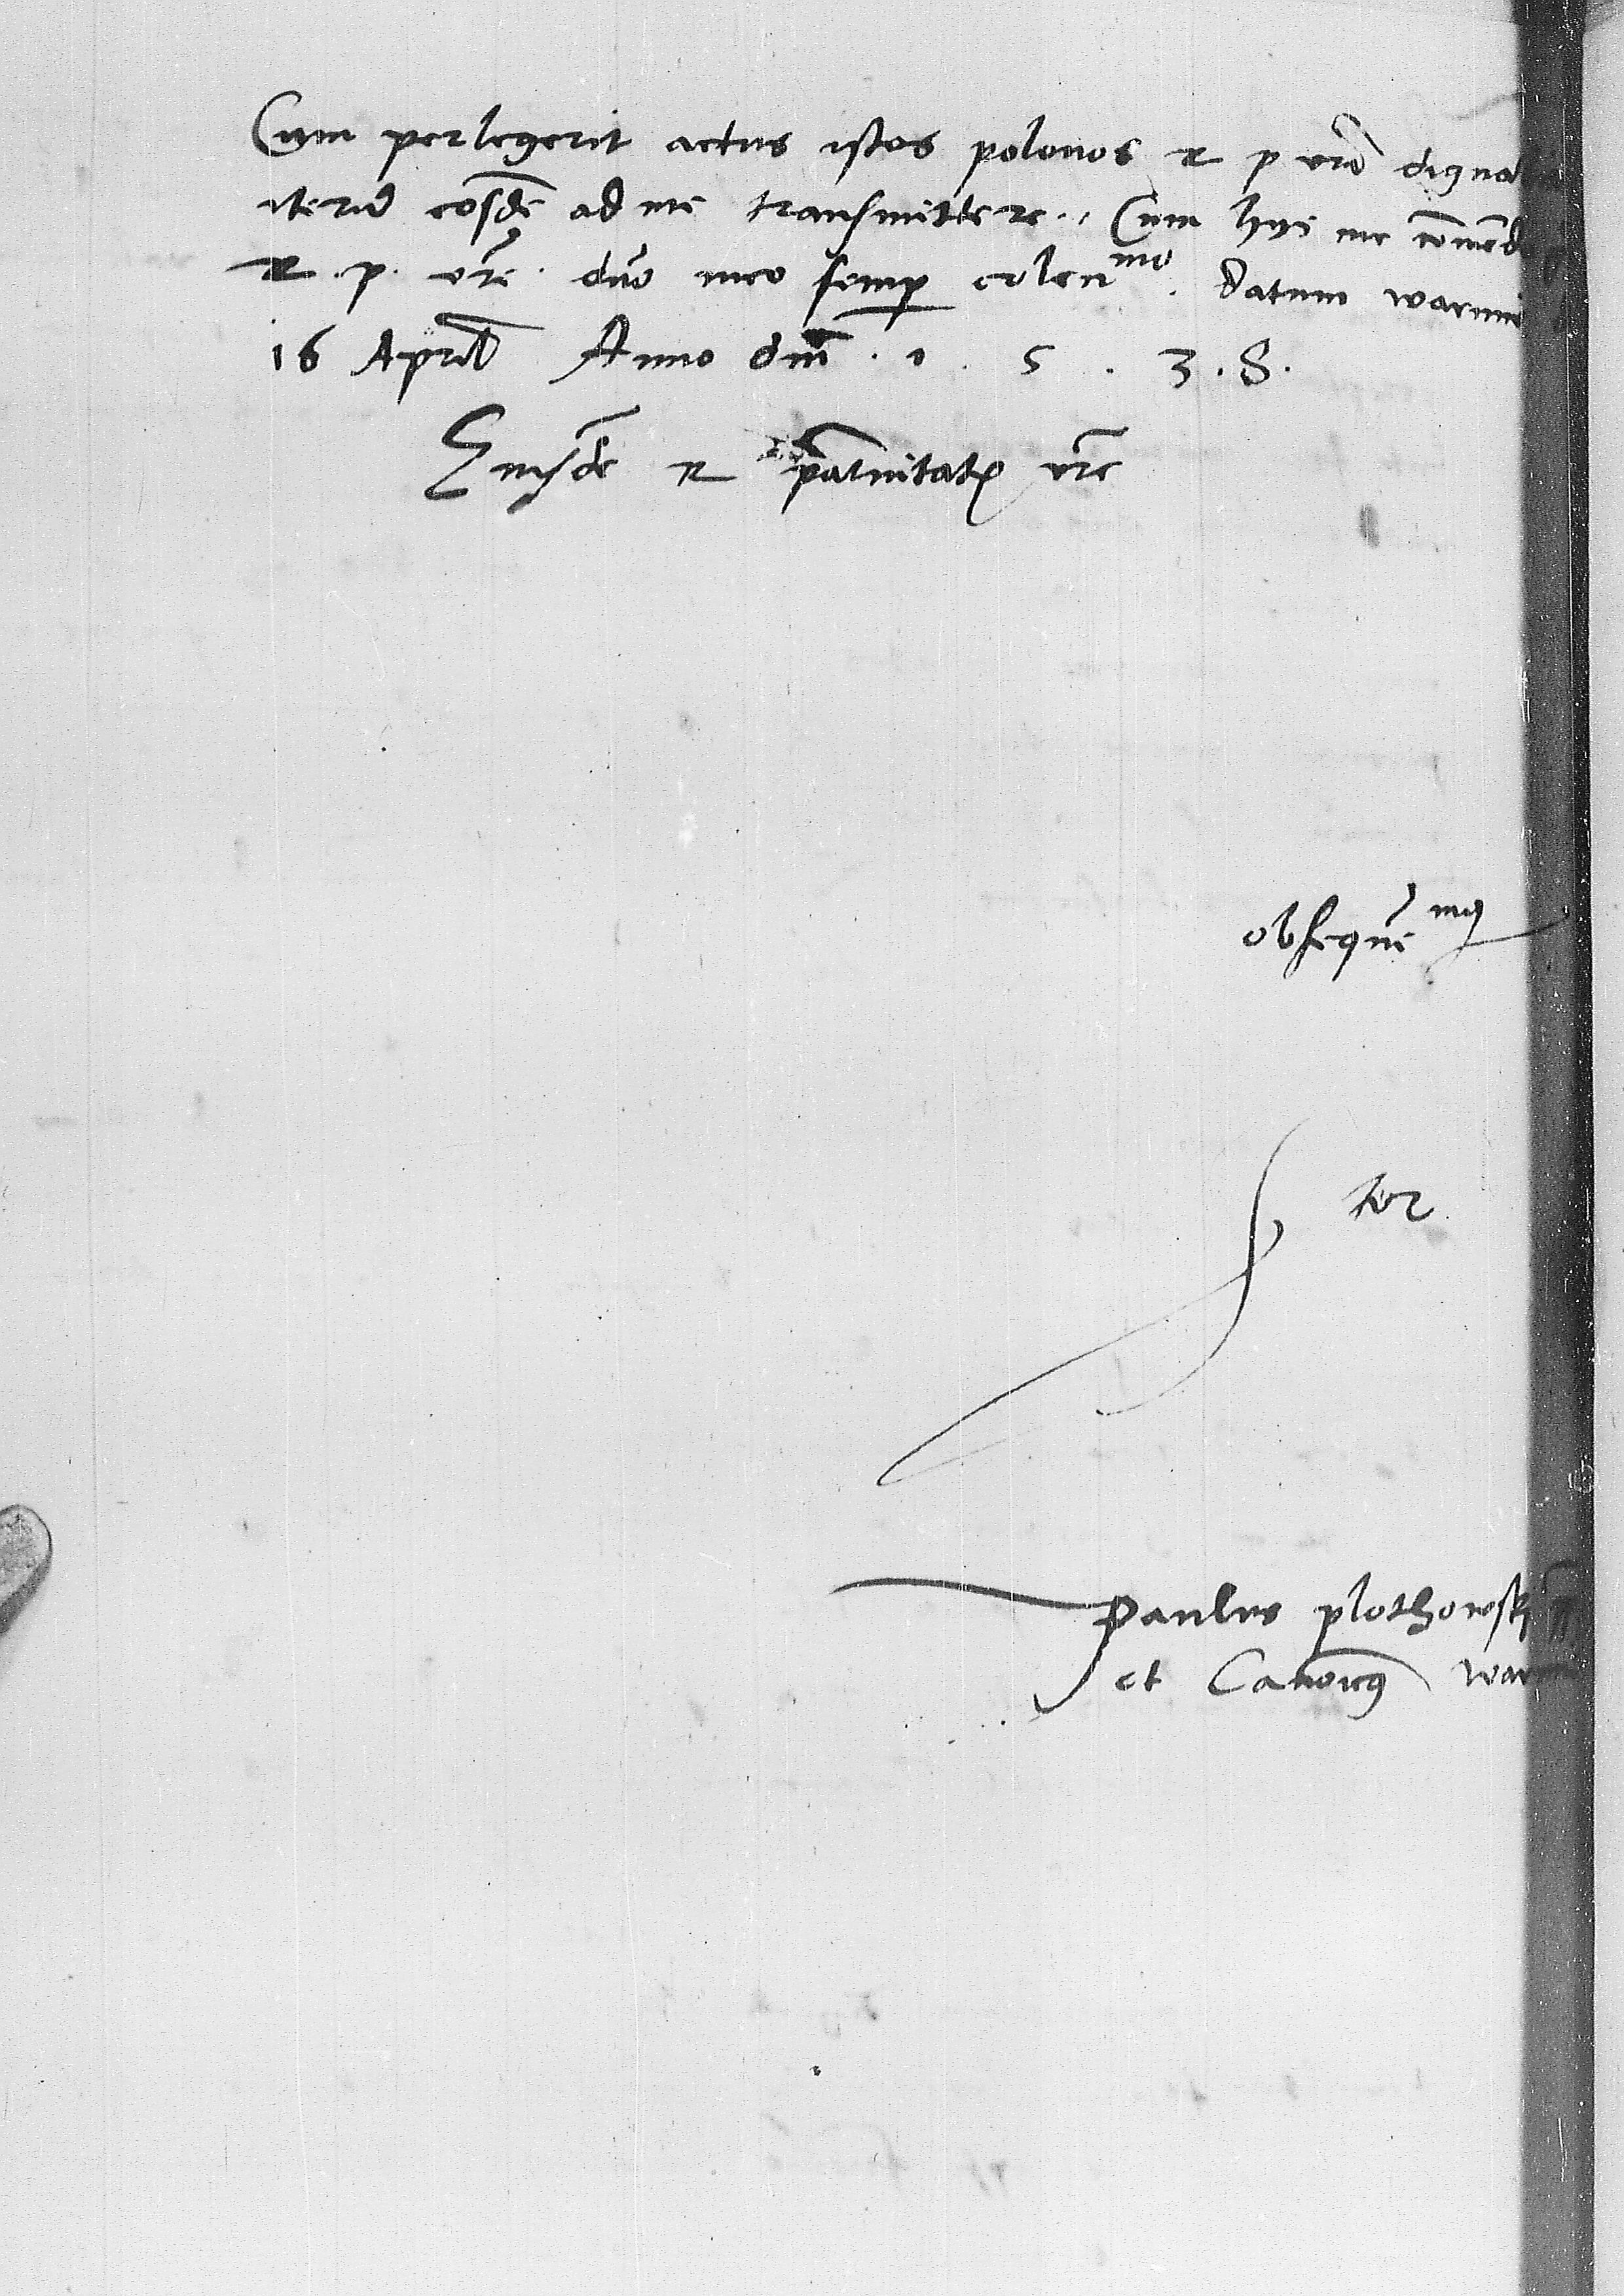 Cum perlegerit actus istos polonos R p vrã digna
iterũ eosdẽ ad me transmittere. Cum hijs me cõmẽdo
R. p. vrẽ. dño meo semp colen^mo. Datum warmie
16 April Anno dnĩ . 1 . 5 . 3 . 8 .
Eiusdẽ R p̃atnitatꝭ vrẽ
obsequẽ^mꝰ
Paulus plothowski
et Canonicꝰ